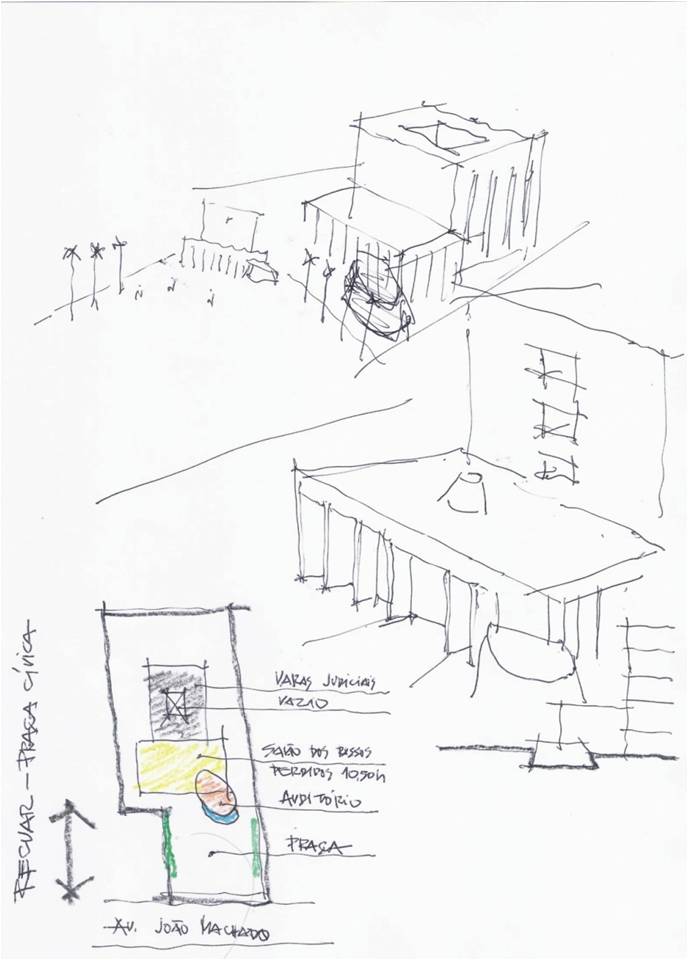 RECUAR – PRAÇA CÍVICA
VARAS JUDICIAIS
VAZIO
SALÃO DOS PASSOS
PERDIDOS
AUDITÓRIO
PRAÇA
AV. JOÃO MACHADO